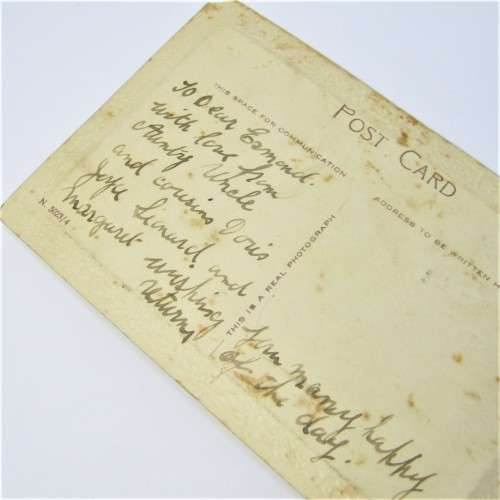 POST CARD
THIS SPACE FOR COMMUNICATION
ADDRESS TO BE WRITTEN H
To Dear Esmond.
with love from
Aunty Uncle
and cousins Doris
Joyce Leonard and
Margaret wishing you many happy
returns of the day.
THIS IS A REAL PHOTOGRAPH
N. 5023/4